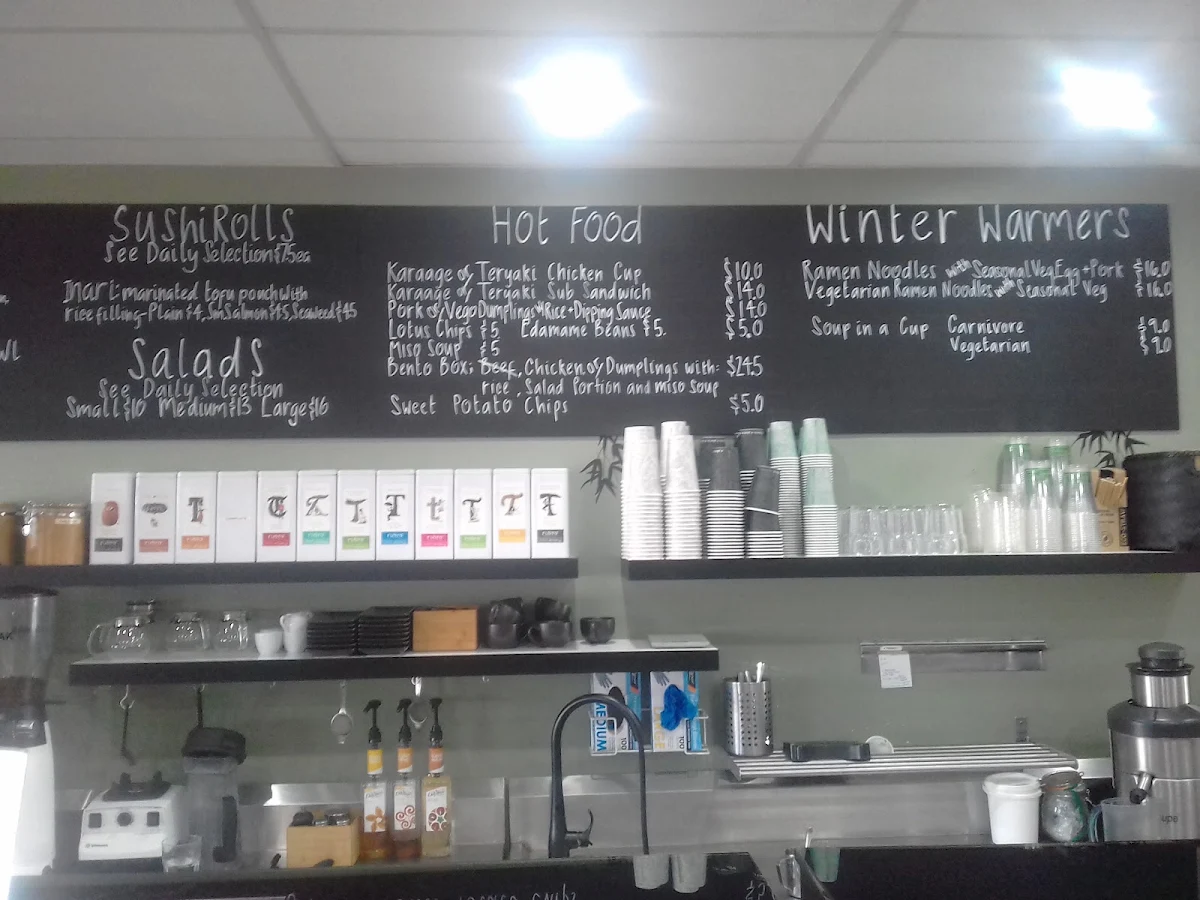 SushiRolls
See Daily Selection $7.5ea
Inari: marinated tofu pouch with
rice filling-Plain $4, Salmon $4.5, Seaweed $4.5
Salads
See Daily Selection
Small $10 Medium $13 Large $16
Hot Food
Karaage or Teryaki Chicken Cup $10.0
Karaage or Teryaki Sub Sandwich $14.0
Pork or Vego Dumplings Rice + Dipping Sauce $14.0
Lotus Chips $5 Edamame Beans $5. $5.0
Miso Soup $5
Bento Box: Beef, Chicken or Dumplings with: $24.5
rice, Salad Portion and miso soup
Sweet Potato Chips $5.0
Winter Warmers
Ramen Noodles with Seasonal Veg Egg + Pork $16.0
Vegetarian Ramen Noodles with Seasonal Veg $16.0
Soup in a Cup Carnivore $9.0
Vegetarian $9.0
MEDIUM
100